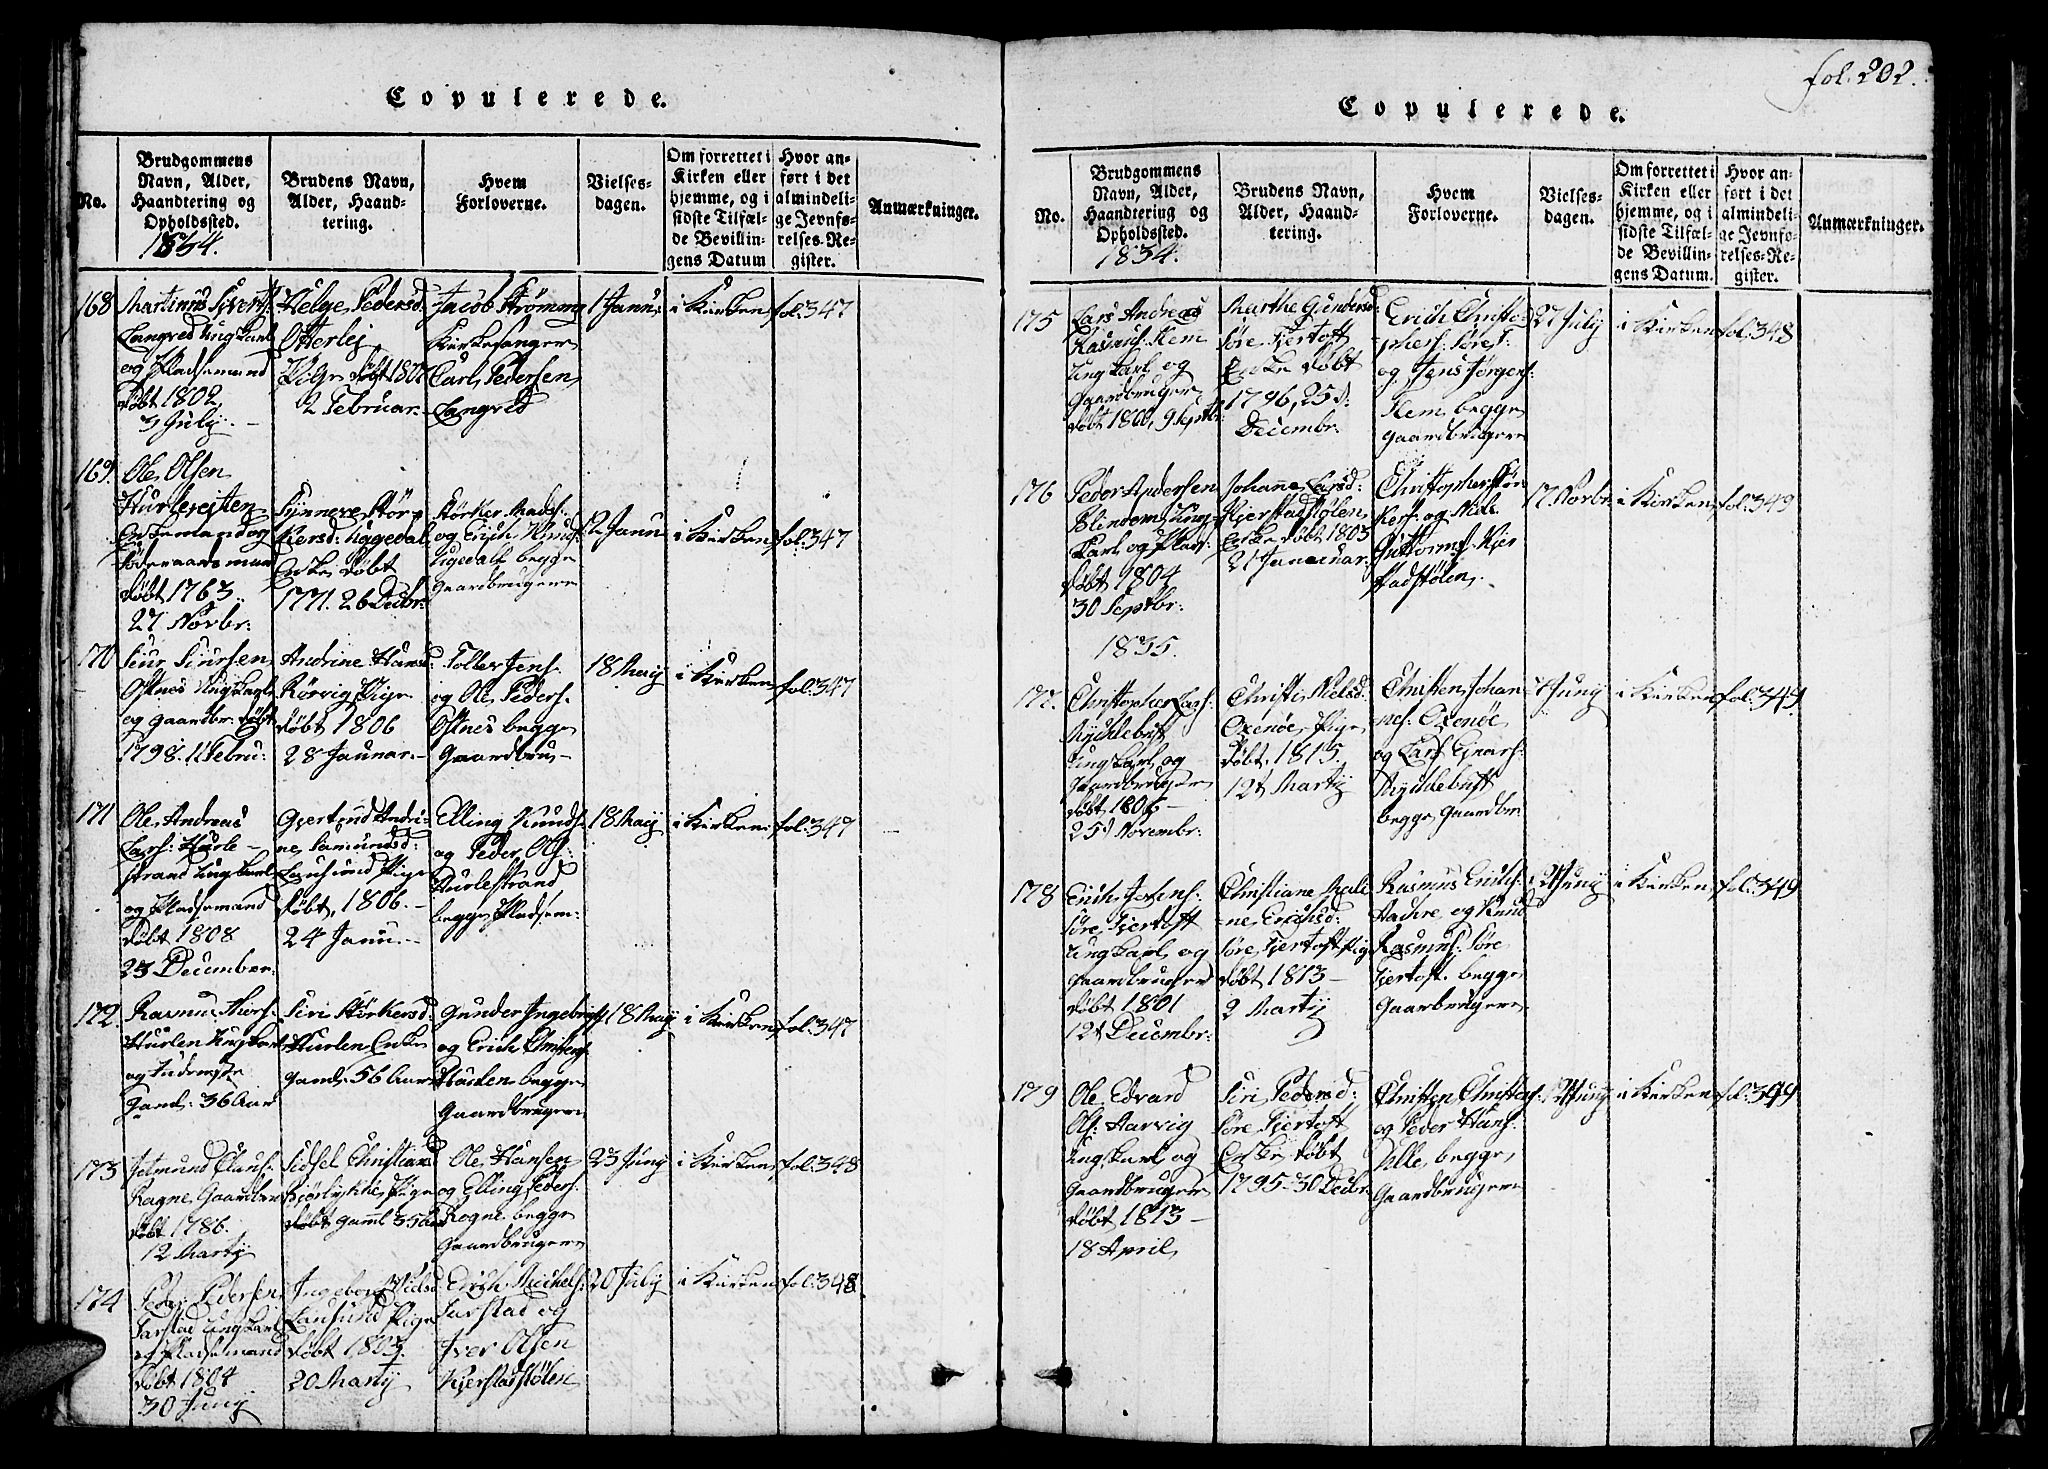 Copulerede.
No.
Brudgommens
Navn, Alder,
Haandtering og
Opholdssted.
1834.
Brudens Navn,
Alder, Haand-
tering.
Hvem
Forloverne.
Vielses-
dagen.
Om forrettet i
Kirken eller
hjemme, og i
sidste Tilfæl-
de Bevillin-
gens Datum
Hvor an-
ført i det
almindeli-
ge Jevnfø-
relses-Re-
gister.
Anmærkninger.
168
Martinus Siverts:
Langred Ungkarl
og Pladsemand
døbt 1802
3 July.
Helge Pedersd:
Otterlej
Pige døbt 1807
2 Februar.
Jacob Strømeng
Kirkesanger
Carl Pedersen
Langred
1 Janu:
i Kirken
fol: 347
169.
Ole Olsen
Enkemand og
Føderaadsman
døbt 1763.
27 Novbr:
Synneve Stør=
kersd: Uggedal
Enke døbt
1771. 26 Decbr:
Størker Mads:
og Erich Knuds:
Ugedal begge
gaardbrugere
12 Janu
i Kirken
fol: 347
170
Siur Siursen
Østnes Ungkarl
og gaardbr: døbt
1798. 11 Febru:
Andrine Hansd:
Rørvig Pige
døbt 1806
28 Januar.
Toller Jens:
og Ole Peders:
Østnes begge
Gaardbru-
18 Maij
i Kirken
fol: 347
171
Ole Andreas
Lars: Hurle-
strand Ungkarl
og Pladsemand
døbt 1808
23 December.
Giertrud Andri-
ne Samunds:
Lausund Pige
døbt, 1806.
24 Janu.
Elling Knuds:
og Peder Ols:
Hurlestrand
begge Pladsem:
18 Maij
i Kirken
fol: 347
172.
Rasmus Thors:
Hurlen Ungkarl
og Inderste
Gaml: 36 Aar
Siri Størkersd:
Hurlen Enke
gaml: 56 Aar
Gunder Ingebrigts:
og Erich Christens:
Hurlen begge
Gaardbrugere
18 Maij
i Kirken
fol: 347
173
Jetmund Claus:
Rogne Gaardbru
døbt 1786.
12 Martij
Sidsel Christiansd:
Biørlykke Pige
døbt gaml 35 aar
Ole Hansen
og Elling Peders:
Rogne begge
Gaardbrugere
23 Juny
i Kirken
fol: 348
174
Peder Pedersen
Farstad Ungkarl
og Pladsemand
døbt 1804
30 Juny
Ingeborg Nielsd
Lausund Pige
døbt 1803.
20 Martij
Erich Michels:
Farstad og
Iver Olsen
Kjerstadstølen
20 July
i Kirken
fol: 348
fol: 202.
Copulerede.
No.
Brudgommens
Navn, Alder,
Haandtering og
Opholdssted.
1834.
Brudens Navn,
Alder, Haand-
tering.
Hvem
Forloverne.
Vielses-
dagen.
Om forrettet i
Kirken eller
hjemme, og i
sidste Tilfæl-
de Bevillin-
gens Datum.
Hvor an-
ført i det
almindeli-
ge Jevnfø-
relses-Re-
gister.
Anmærkninger.
175
Lars Andreas
Rasmus: Flem
Ungkarl og
Gaardbruger
døbt 1800, 9 Septb:
Marthe Gundersd:
Søre Fjertoft
Enke døbt
1796, 25d:
Decembr:
Erich Christo-
phers: Søref:
og Jens Jørgens:
Flem begge
gaardbrugere
27 July
i Kirken
fol: 348
176
Peder Andersen
Blindem Ung-
karl og Plads:
døbt 1804
30 Septbr:
Johanne Larsd:
Kjerstadstølen
Enke døbt 1803
21 Januar
Christopher Stør
kers: og Nils
Guttorms: Kjer
stadstølen.
17. Novbr:
i Kirken
fol: 349
1835.
177.
Christopher Lars:
Myklebust
Ungkarl og
Gaardbruger
døbt 1806
25d Novembr:
Christi Nielsd:
Oxenøe Pige
døbt. 1815.
12t Martij
Christen Johan
nes: Oxenøe
og Lars Einars:
Myklebust
begge Gaardbr:
7 Juny
i Kirken
fol: 349
178
Erich Jetmunds:
Søre Fjertoft
Ungkarl og
gaardbruger
døbt 1801
12t Decembr:
Christiane Male
=ne Erichsd:
Søre Fjertoft Pig
døbt 1813
2 Martij
Rasmus Erichs:
og Knud
Rasmus: Søre
Fjertoft. begge
Gaarbrugere
Juny
i Kirken
fol: 349
179
Ole Edvard
Ols: Harvig
Ungkarl og
Gaardbruger
døbt 1813
18 April
Siri Pedersd:
Søre Fjertoft
Enke døbt
1795 30 Decbr:
Christen Christens:
og Peder Hans:
Ulle begge
Gaardbrugere
Juny
i Kirken
fol: 349